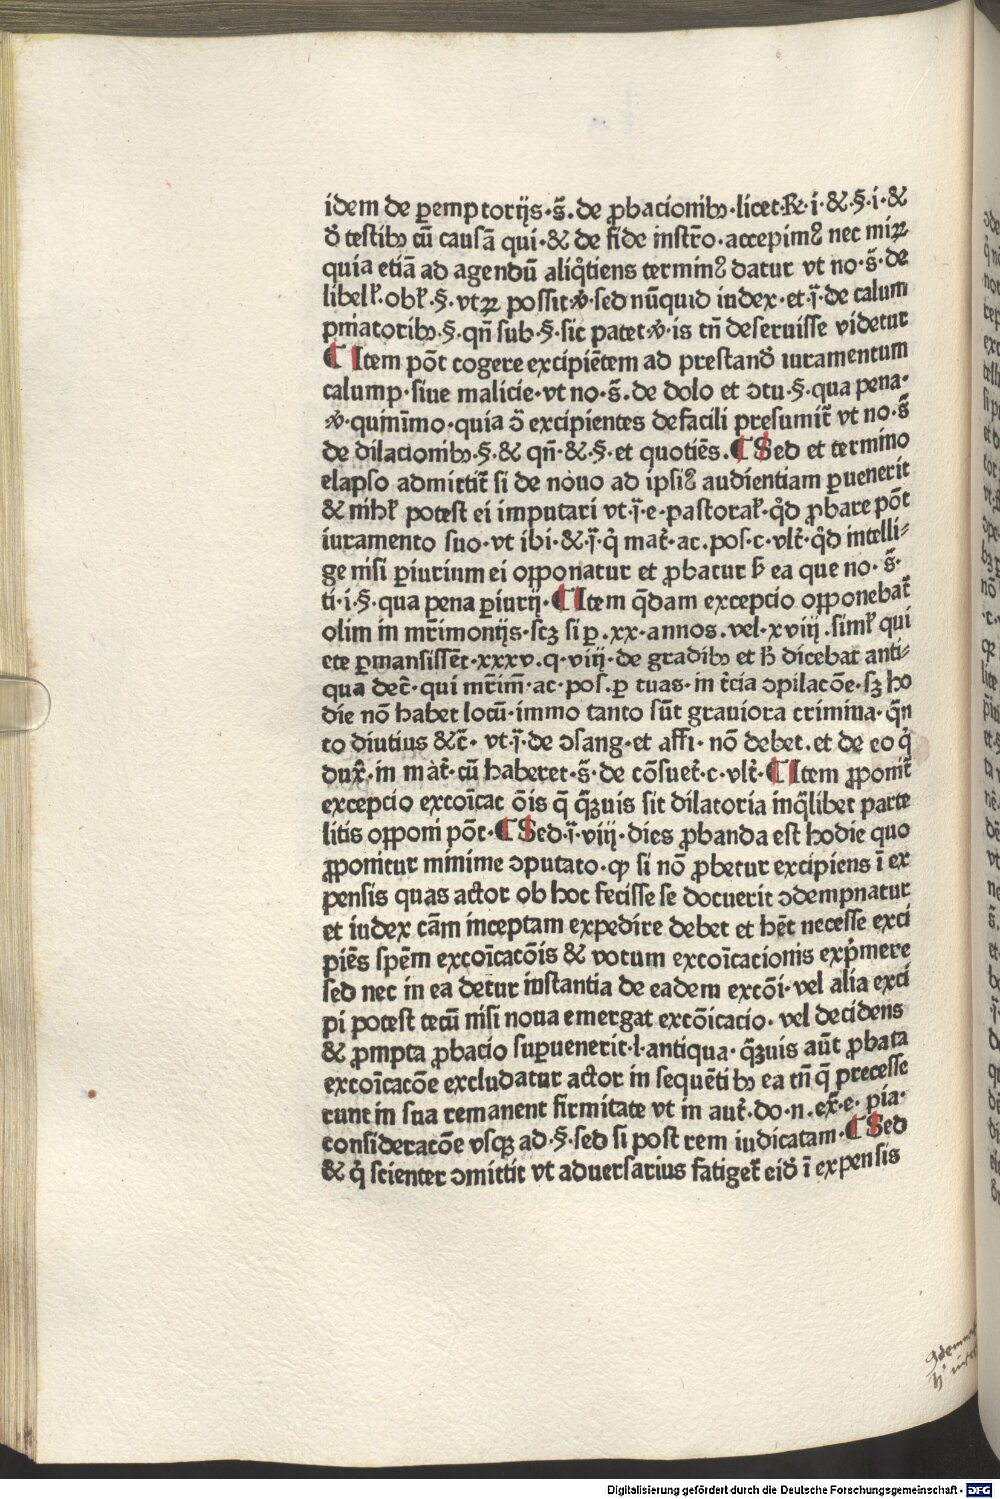 idem de ꝑemptorijs·s̃·de ꝓbacionibꝫ·licet·Re·i·&·§·i·&
ð testibꝫ cũ causã qui·&·de fide instr̃o·accepimꝰ nec miꝝ
quia etiã ad agendũ aliq̊tiens terminꝰ datur vt no·s̃·de
libell̃·obl̃·§·vtꝝ possit·sed nũquid iudex·et·j̃·de calum
pniatoribꝫ·§·qñ sub·§·sic patet·is tñ deseruisse videtur
¶ Item põt cogere excipiẽtem ad prestandð iuramentum
calump·siue malicie·vt no·s̃·de dolo et ↄtu·§·qua pena·
quinĩmo·quia ↄ̃ excipientes defacili presumit̃ vt no·s̃
de dilacionibꝫ·§·&·qñ·&·§·et quotiẽs.¶ Sed et termino
elapso admittit̃ si de nouo ad ipsiꝰ audientiam ꝑuenerit
& nihil̃ potest ei imputari vt·j̃·e·pastoral̃·q̊d ꝓbare põt
iuramento suo·vt ibi·&·j̃·q̇ mat̃·ac·pos·c·vlt̃·q̊d intelli⸗
ge nisi ꝑiurium ei oꝓponatur et ꝓbatur ƀ ea que no·s̃·
ti·i·§·qua pena ꝑiurij·¶ Item q̃dam excepcio oꝓponebat̃
olim in mr̃imonijs·scꝫ si ꝑ·xx·annos·vel·xviij·siml̃ qui
ete ꝑmansissẽt·xxxv·q·viij·de gradibꝫ et ħ dicebat anti⸗
qua dec̃·qui mr̃im̃·ac·pos·ꝑ tuas·in t̃cia ↄpilacõe·sꝫ ho
die nõ habet locũ·immo tanto sũt grauiora crimina·q̃n
to diutius &c̃·vt·j̃·de ↄsang·et affi·nõ debet·et de eo q̇
dux̃·in mat̃·cũ haberet·s̃·de cõsuet̃·c·vlt̃·¶ Item ꝓponit̃
excepcio excoĩcac õis q̃ q̃ꝫuis sit dilatoria inq̃libet parte
litis oꝓponi põt·¶ Sed·j̃·viij·dies ꝓbanda est hodie quo
ꝓponitur minime ↄputato·ꝙ si nõ ꝓbetur excipiens ĩ ex
pensis quas actor ob hoc fecisse se docuerit ↄdempnatur
et iudex cãm inceptam expedire debet et hẽt necesse exci
piẽs spẽm excoĩcacõis & votum excoĩcacionis exp̃mere
sed nec in ea detur instantia de eadem excõi·vel alia exci
pi potest tecũ nisi noua emergat excõicacio·vel decidens
& ꝓmpta ꝓbacio suꝑuenerit·l·antiqua·q̃ꝫuis aũt ꝓbata
excoĩcacõe excludatur actor in sequẽtibꝫ ea tñ q̃ precesse
runt in sua remanent firmitate vt in aut̃·do·n·ex̃·e·pia·
consideracõe vsqꝫ ad·§·sed si post rem iudicatam·¶ Sed
& q̇ scienter ↄmittit vt aduersarius fatiget̃ eið ĩ expensis
Digitalisierung gefördert durch die Deutsche Forschungsgemeinschaft - DFG